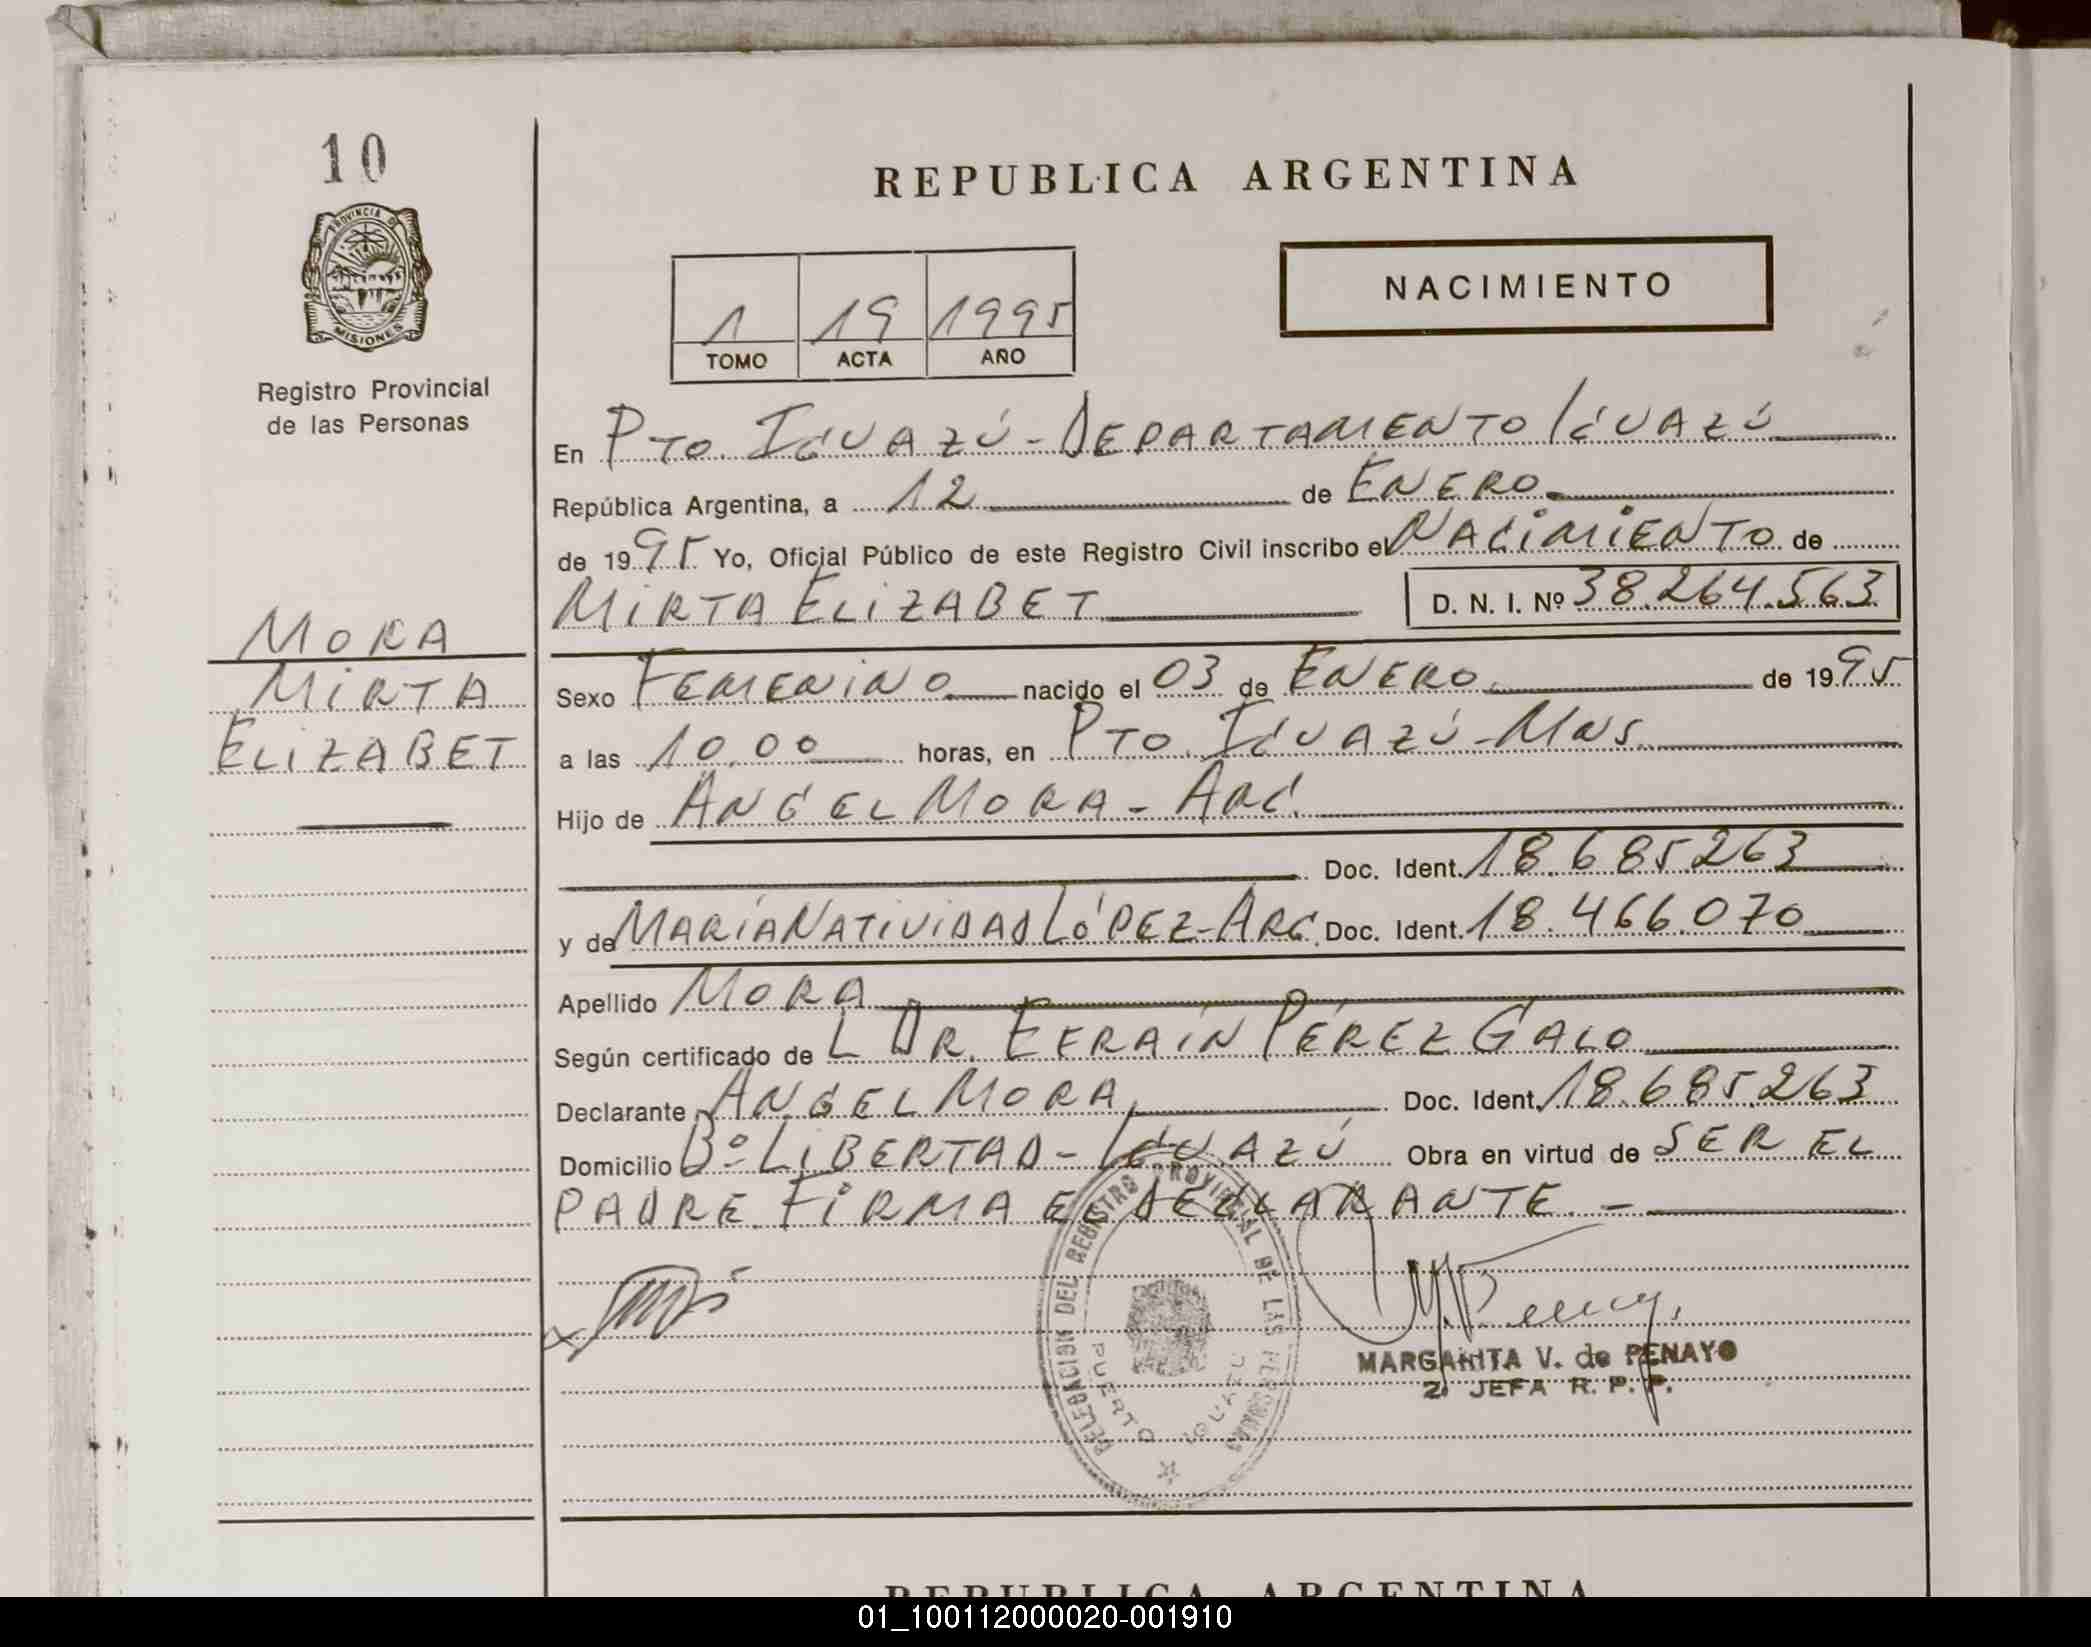 10
PROVINCIA DE
MISIONES
Registro Provincial
de las Personas
MORA
MIRTA
ELIZABET
REPUBLICA ARGENTINA
1 19 1995
TOMO ACTA AÑO
NACIMIENTO
En PTO. IGUAZÚ - DEPARTAMENTO IGUAZÚ
República Argentina, a 12 de ENERO
de 1995 Yo, Oficial Público de este Registro Civil inscribo el NACIMIENTO de
MIRTA ELIZABET D. N. I. Nº 38.264.563
Sexo FEMENINO nacido el 03 de ENERO de 1995
a las 10,00 horas, en PTO. IGUAZÚ - MNS.
Hijo de ANGEL MORA - ARG.
Doc. Ident. 18.685263
y de MARÍA NATIVIDAD LÓPEZ - ARG. Doc. Ident. 18.466.070
Apellido MORA
Según certificado de L DR. EFRAÍN PÉREZ GALO
Declarante ANGEL MORA, Doc. Ident. 18.685.263
Domicilio Bº LIBERTAD - IGUAZÚ Obra en virtud de SER EL
PADRE. FIRMA EL DECLARANTE. -
DELEGACION DEL REGISTRO PROVINCIAL DE LAS PERSONAS
PUERTO IGUAZU
MARGARITA V. de PENAYO
2ª JEFA R. P. P.
REPUBLICA ARGENTINA
01_100112000020-001910